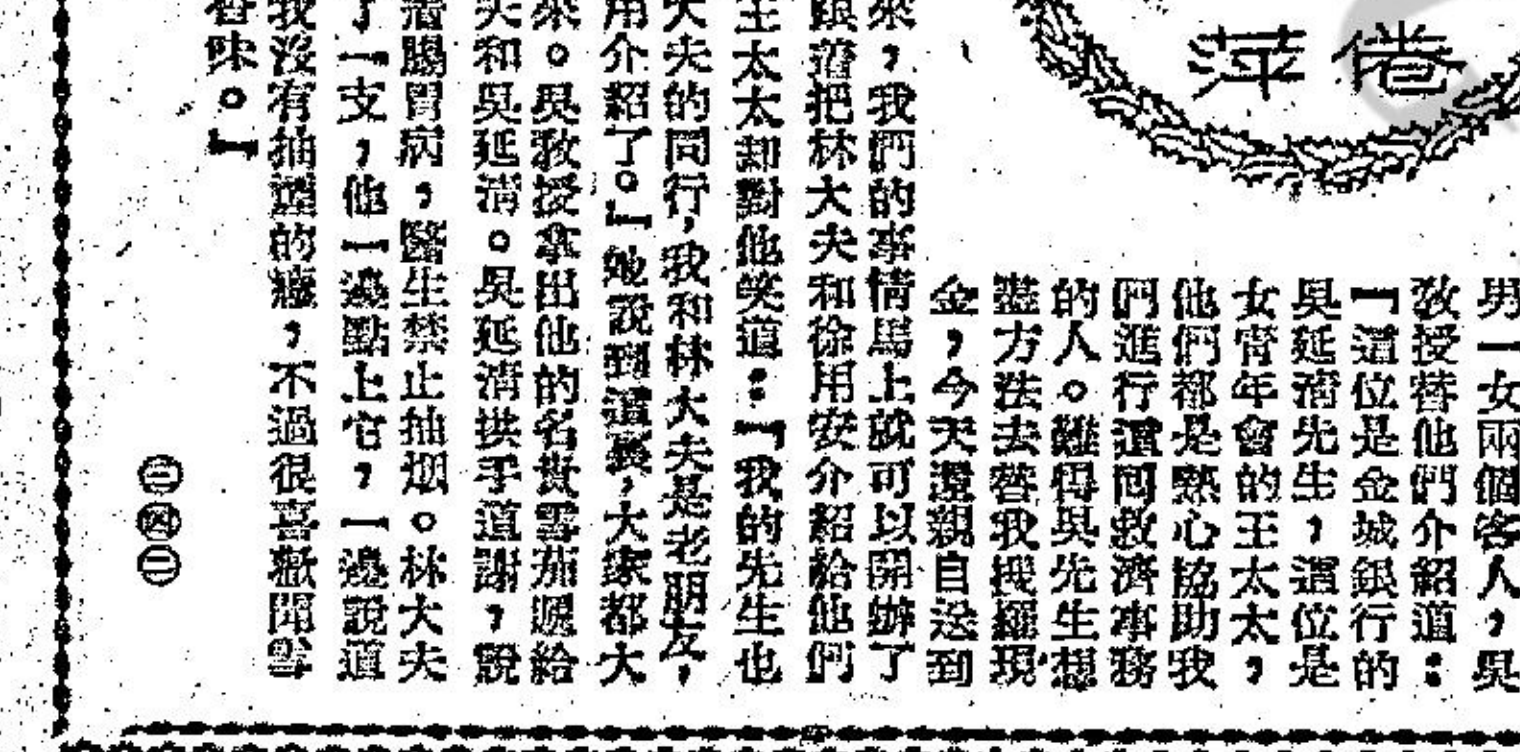 倦萍
男一女兩個客人，吳
教授替他們介紹道：
「這位是金城銀行的
吳延清先生，這位是
女青年會的王太太，
他們都是熱心協助我
們進行這回救濟事務
的人。難得吳先生想
盡方法去替我搜羅現
金，今天還親自送到
來，我們的事情馬上就可以開辦了
跟着把林大夫和徐用安介紹給他們
王太太却對他笑道：「我的先生也
大夫的同行，我和林大夫是老朋友，
用介紹了。」她說到這裏，大家都大
來。吳教授拿出他的名貴雪茄遞給
夫和吳延清。吳延清拱手道謝，說
腸胃病，醫生禁止抽烟。林大夫
了一支，他一邊點上它，一邊說道
我沒有抽這的癮，不過很喜歡聞雪
香味。」
二四二